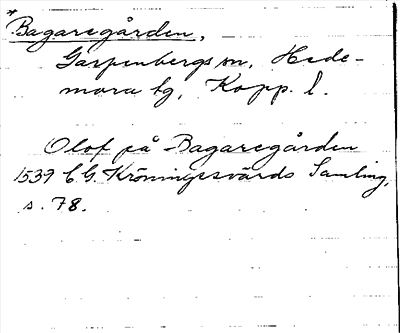 *Bagaregården,
Garpenbergs sn, Hede-
mora tg, Kopp. l.
Olof på Bagaregården
1539 C.G. Kröningssvärds Samling,
s. 78.